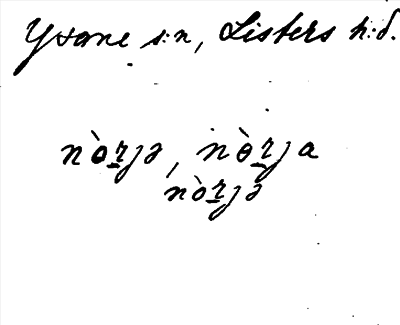 Ysane s:n, Listers h:d.
nòṟɟə, nòṟɟa
nòṟɟə